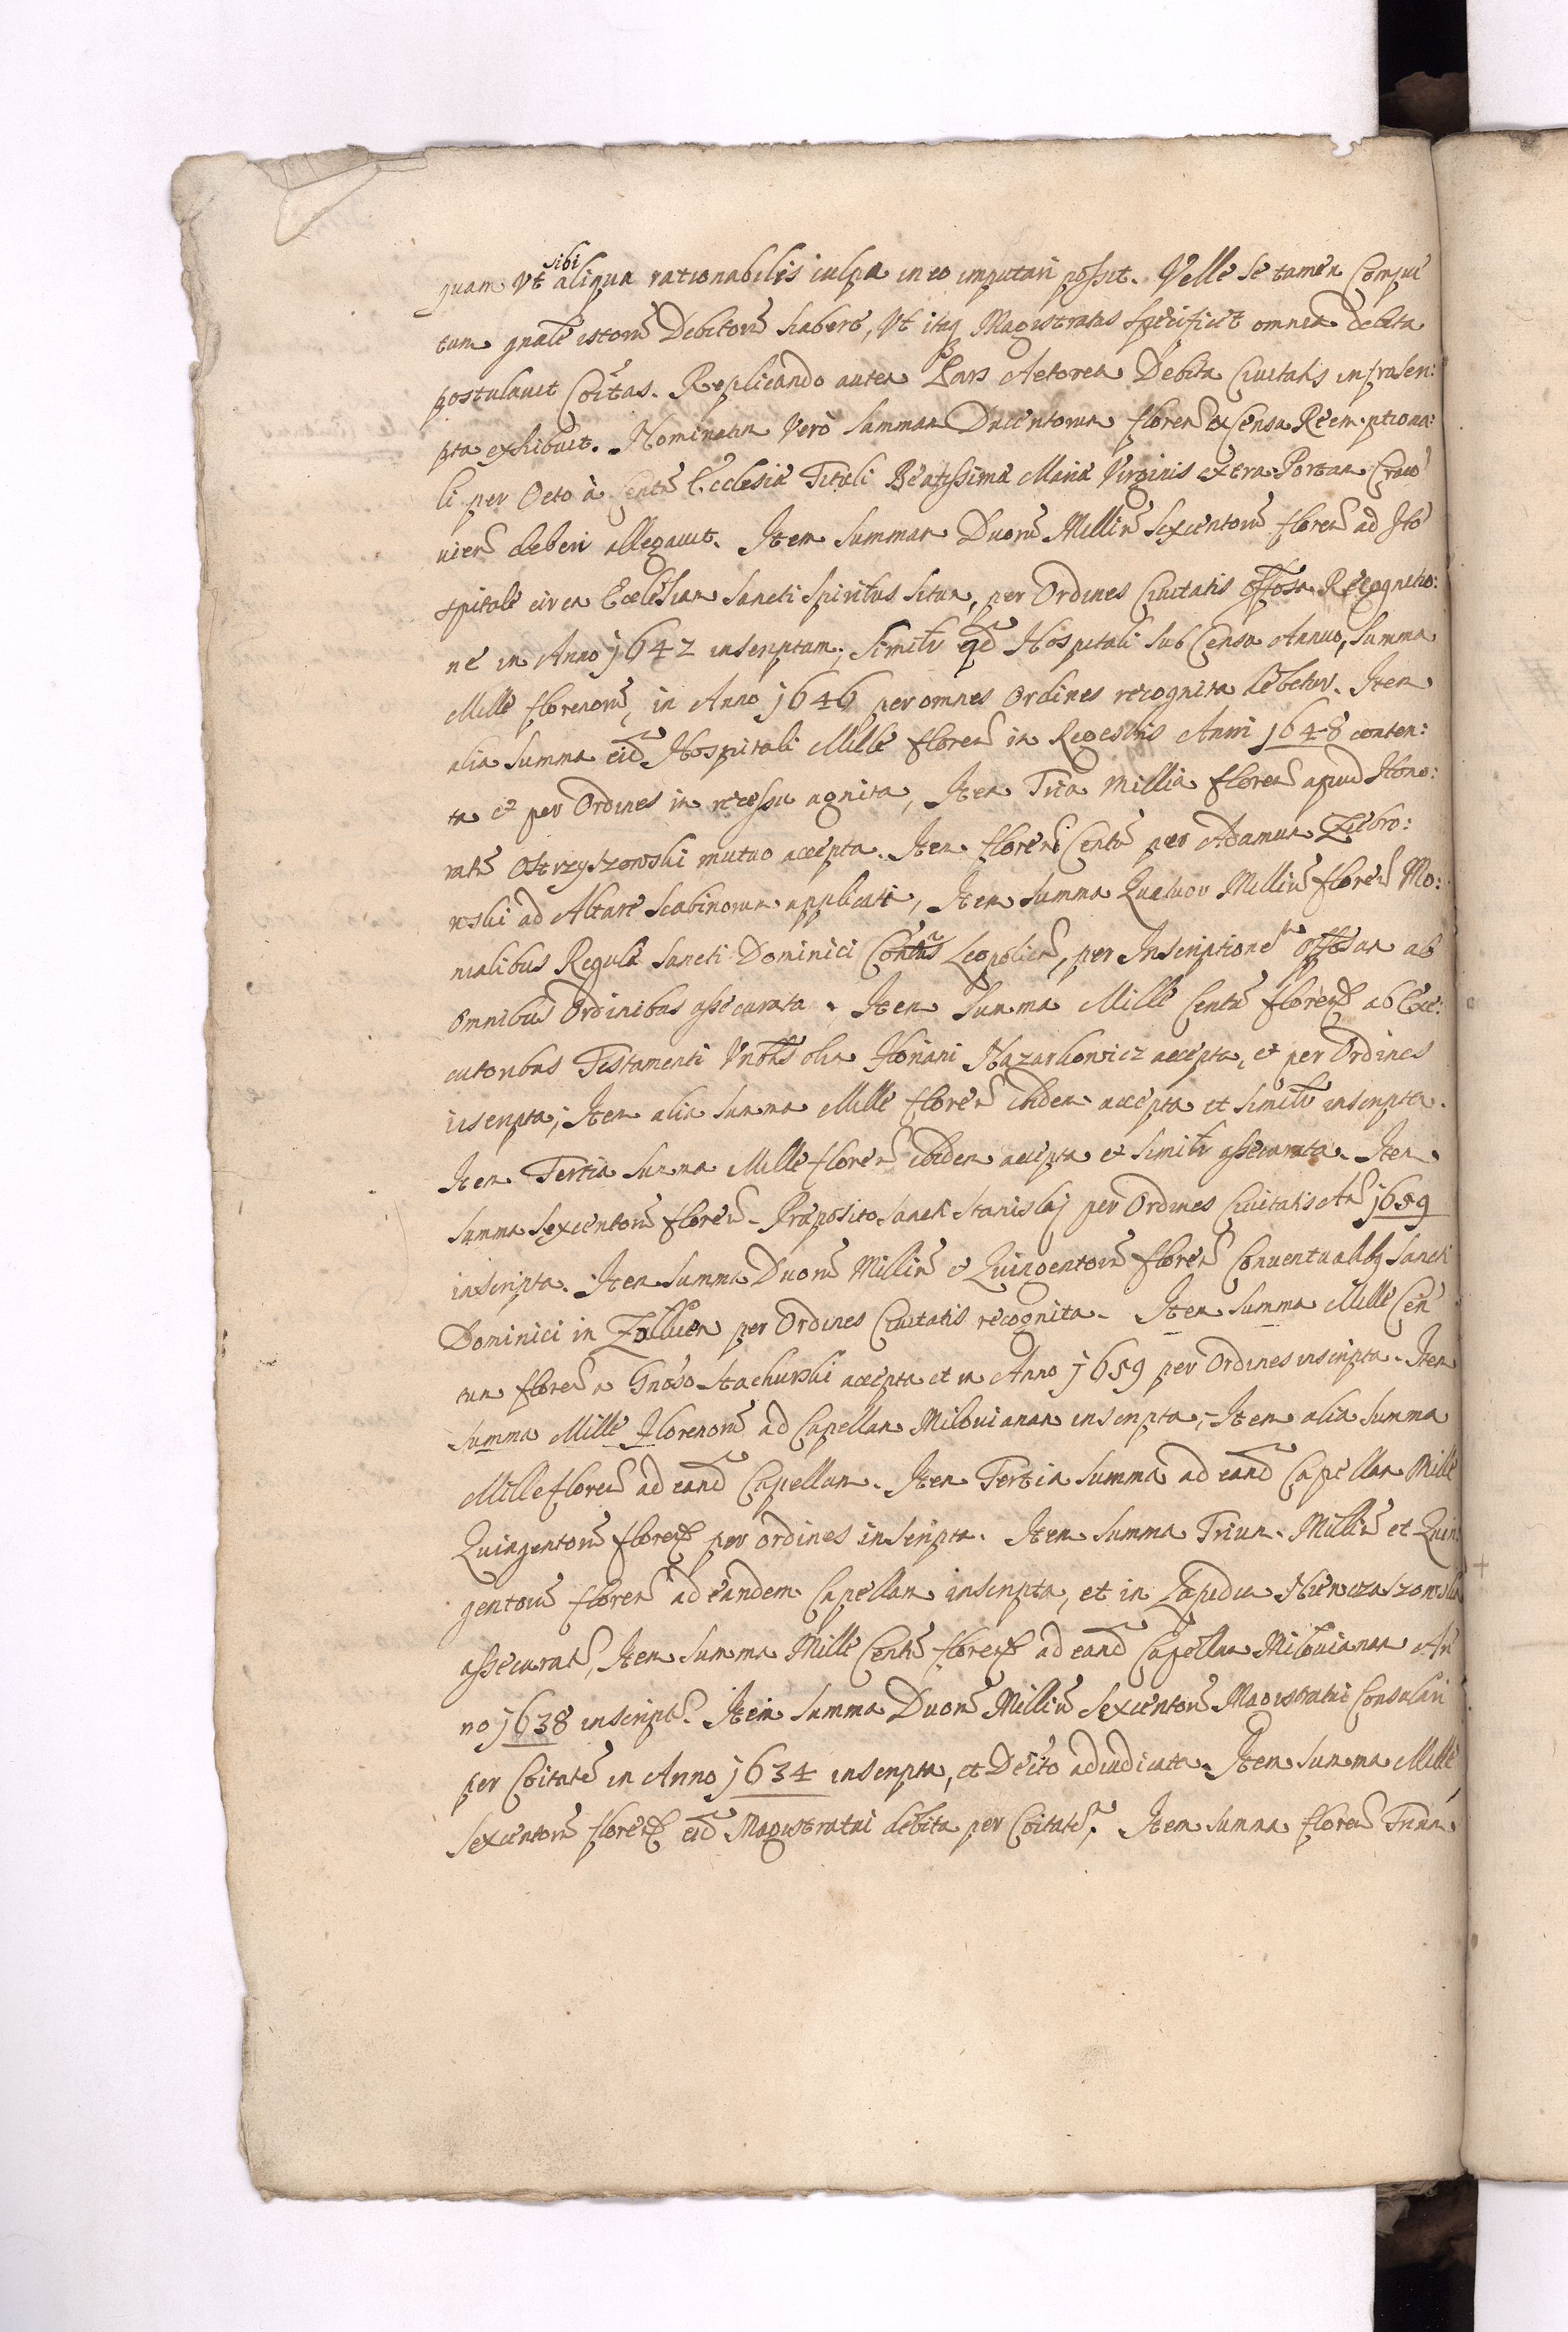 quam Vt sibi aliqua rationabilis culpa in eo imputari possit. Velle se tamen Compu
tum gnale istorũ Debitorũ habere, Vt itaq Magistratus specificet omnia debita
postulavit Coitas. Replicando autem Pars Actorea Debita Civitatis infrascri:
pta exhibuit. Nominatim Verò Summam Ducentorum floren ex Censu Reemptiona:
li per Octo à Centũ Ecclesiæ Tituli Beatissimæ Mariæ Virginis extra Portam Craco
vien deberi allegavit. Item Summam Duorũ Milliũ Sexcentorũ floren ad Ho
spitale circa Ecclesiam Sancti Spiritus sitam, per Ordines Civitatis offosa Recognitio:
ne in Anno 1642 inscriptam; Similtr eid Hospitali sub Censu Annuo, Summa
Mille florenorũ, in Anno 1646 per omnes Ordines recognita debetur. Item
alia Summa eid Hospitali Mille floren in Regestris Anni 1648 conten:
ta et per Ordines in recessu agnita, Item Tria Millia floren apud Hono:
ratũ Ostrzyszowski mutuo accepta. Item floreni Centũ per Adamum Ziebro:
wski ad Altare Scabinorum applicati, Item Summa Quatuor Milliũ floren Mo:
nialibus Regulæ Sancti Dominici Contus Leopolien, per Inscriptionẽ offosam ab
Omnibus Ordinibus assecurata. Item Summa Mille Centũ floren ab Exe:
cutoribus Testamenti olim Floriani Nazarkowicz accepta, et per Ordines
iscripta; Item alia Summa Mille floren ibidem accepta et Similtr inscripta.
Item Tertia Summa Mille floren ibidem accepta et Similtr assecurata. Item
Summa Sexcentorũ floren Præposito Sancti Stanislaj per Ordines Civitatis Aõ 1659
inscripta. Item Summa Duorũ Milliũ et Quingentorũ floren Conventualibq Sancti
Dominici in Zolkien per Ordines Civitatis recognita. Item Summa Mille Cen
tum floren a Gnoso Stachurski accepta et in Anno 1659 per Ordines inscripta. Item
Summa Mille Florenorũ ad Capellam Milovianam inscripta, Item alia Summa
Mille floren ad eand Capellam. Item Tertia Summa ad eand Capellam Mille
Quingentorũ floren per ordines inscripta. Item Summa Trium Milliũ et Quin
gentorũ floren ad eandem Capellam inscripta, et in Lapidea
assecurata, Item Summa Mille Centũ floren ad eand Capellam Milovianam An
no 1638 inscripta. Item Summa Duorũ Milliũ Sexcentorũ Magistratui Consulari
per Coitatẽ in Anno 1634 inscripta, et Decto adiudicata. Item Summa Mille
Sexcentorũ floren eid Magistratui debita per Coitatẽ. Item Summa floren Trium